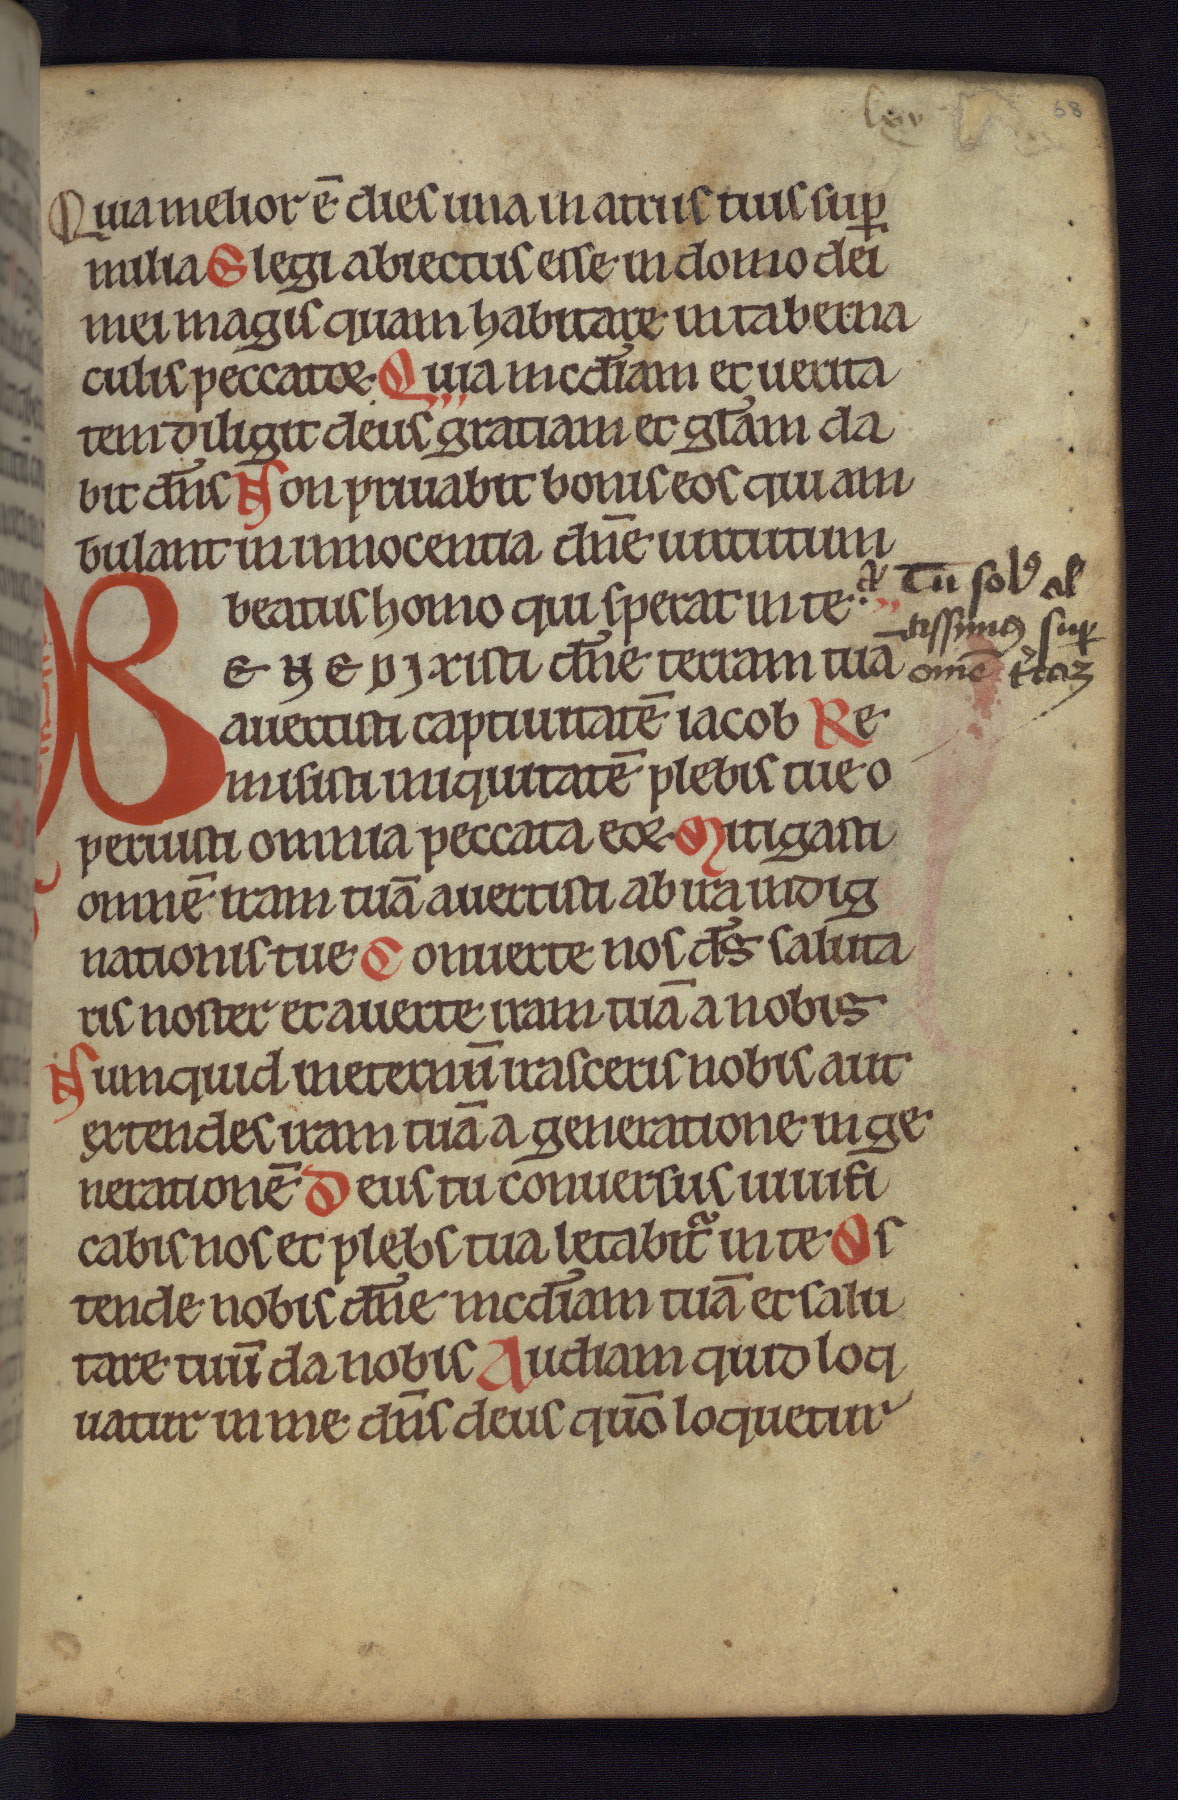 lxv
68
Quia melior ē dies una in atriis tuis sup̄
milia Elegi abiectus esse in domo dei
mei magis quam habitare in taberna
culis peccatoꝝ Quia mcd̄iam et uerita
tem diligit deus gratiam et gl̄am da
bit dn̄s Non priuabit bonis eos qui am
bulant in innocentia dn̄e uirtutum
beatus homo qui sperat in te a͛
Tu sol᷒ al
tissim᷒ sup̄
BENEDIxisti dn̄e terram tuā
om̄e t̄raꝫ
auertisti captiuitatē iacob Re
misisti iniquitatē plebis tue o
peruisti omnia peccata eoꝝ Mitigasti
omnē iram tuā auertisti ab ira indig
nationis tue Conuerte nos d̄s saluta
ris noster et auerte iram tuā a nobis
Numquid in eternū irasceris nobis aut
extendes iram tuā a generatione in ge
nerationē Deus tu conuersus uiuifi
cabis nos et plebs tua letabit᷑ in te Os
tende nobis dn̄e mcd̄iam tuā et salu
tare tuū da nobis Audiam quid loq
uatur in me dn̄s deus quō loquetur